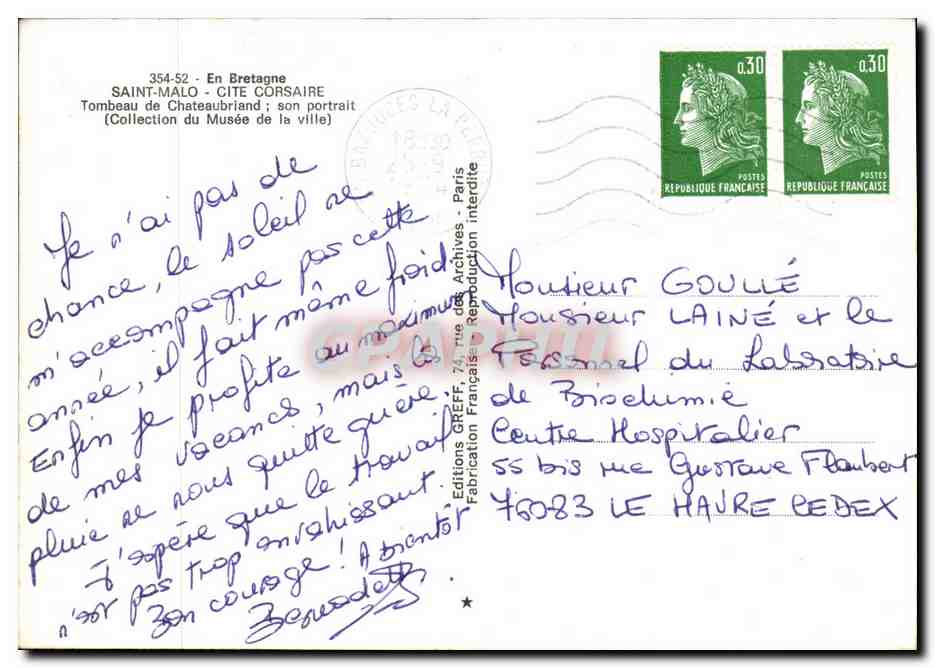 354-52 - En Bretagne
SAINT-MALO - CITE CORSAIRE
Tombeau de Chateaubriand ; son portrait
(Collection du Musée de la ville)
Je n'ai pas de
chance, le soleil ne
m'accompagne pas cette
année, il fait même froid.
Enfin je profite au maximum
de mes vacances, mais la
pluie ne nous quitte guère.
J'espère que le travail
n'est pas trop envahissant.
Bon courage ! A bientôt
Bernadette
Editions GREFF, 74, rue des Archives - Paris
Fabrication Française - Reproduction interdite
0,30
POSTES
REPUBLIQUE FRANÇAISE
0,30
POSTES
REPUBLIQUE FRANÇAISE
Monsieur GOULLÉ
Monsieur LAINÉ et le
Personnel du Laboratoire
de Biochimie
Centre Hospitalier
55 bis rue Gustave Flaubert
76083 LE HAVRE CEDEX